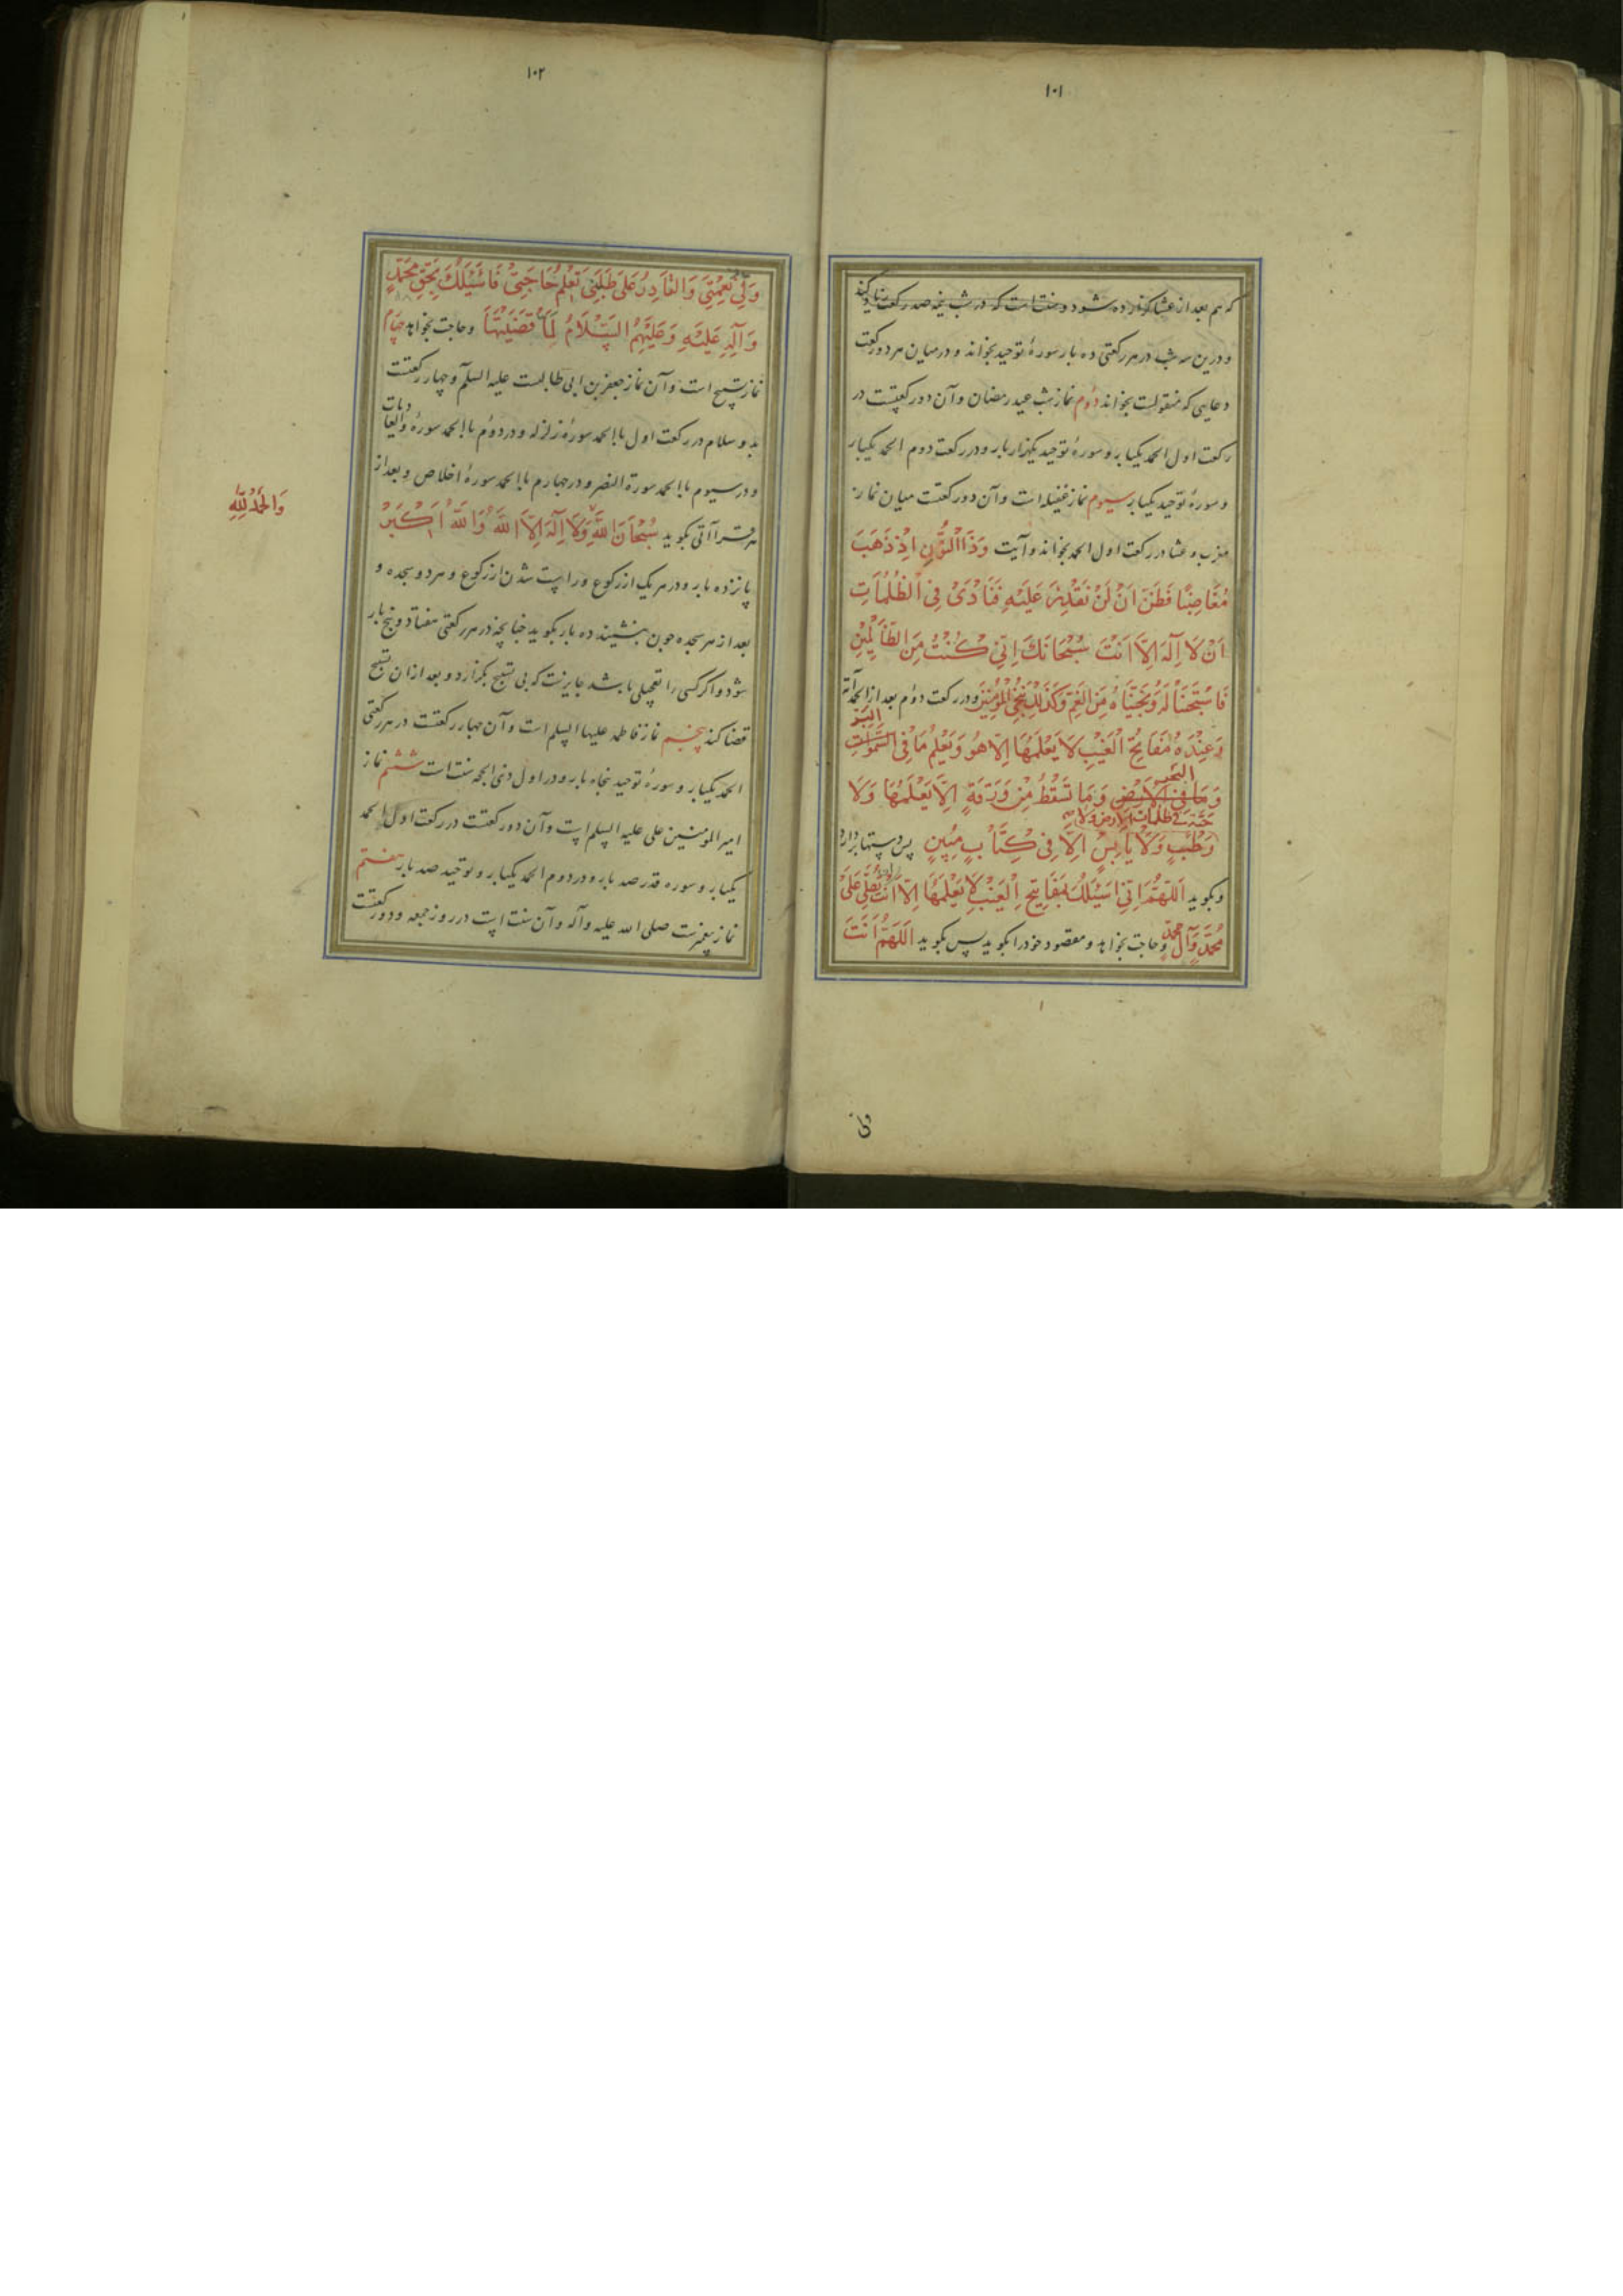 ١٠١
که هم بعد از عشا گزارده شود و سنت است که در شب نیمه صد رکعت زیاد کند
و درین سه شب در هر رکعتی ده بار سورهٔ توحید بخواند و در میان هر دو رکعت
دعایی که منقولست بخواند دوم نماز شب عید رمضان و آن دو رکعتست در
رکعت اول الحمد یکبار و سورهٔ توحید یکهزار بار و در رکعت دوم الحمد یکبار
و سورهٔ توحید یکبار سیوم نماز غفیله است و آن دو رکعتست میان نماز
مغرب و عشا در رکعت اول الحمد بخواند و آیت وَذَا النُّونِ اِذْ ذَهَبَ
مُغَاضِبًا فَظَنَّ اَنْ لَنْ نَقْدِرَ عَلَیْهِ فَنَادٰی فِی الظُّلُمَاتِ
اَنْ لَا اِلٰهَ اِلَّا اَنْتَ سُبْحَانَكَ اِنِّی كُنْتُ مِنَ الظَّالِمِینَ
فَاسْتَجَبْنَا لَهُ وَنَجَّیْنَاهُ مِنَ الْغَمِّ وَكَذٰلِكَ نُنْجِی الْمُؤْمِنِینَ و در رکعت دوم بعد از الحمد آیه
وَعِنْدَهُ مَفَاتِحُ الْغَیْبِ لَا یَعْلَمُهَا اِلَّا هُوَ وَیَعْلَمُ مَا فِی السَّمٰوَاتِ البَرِّ
وَمَا فِی الْاَرْضِ البحر وَمَا تَسْقُطُ مِنْ وَرَقَةٍ اِلَّا یَعْلَمُهَا وَلَا
حَبَّةٍ فی ظلمات الارض ولا
رَطْبٍ وَلَا یَابِسٍ اِلَّا فِی كِتَابٍ مُبِینٍ پس دستها بردارد
و بگوید اَللّٰهُمَّ اِنِّی اَسْئَلُكَ بِمَفَاتِیحِ الْغَیْبِ لَا یَعْلَمُهَا اِلَّا اَنْتَ تُصَلِّی عَلٰی
مُحَمَّدٍ وَآلِ مُحَمَّدٍ و حاجت بخواهد و مقصود خود را بگوید پس بگوید اَللّٰهُمَّ اَنْتَ
ولی
١٠٢
وَلِیُّ نِعْمَتِی وَالْقَادِرُ عَلٰی طَلِبَتِی تَعْلَمُ حَاجَتِی فَاَسْئَلُكَ بِحَقِّ مُحَمَّدٍ
وَآلِهِ عَلَیْهِ وَعَلَیْهِمُ السَّلَامُ لَمَّا قَضَیْتَهَا و حاجت بخواهد چهارم
نماز تسبیح است و آن نماز جعفر بن ابی طالبست علیه السلم و چهار رکعتست
بدو سلام در رکعت اول با الحمد سورهٔ زلزله و در دوم با الحمد سورهٔ والعادیات
و در سیوم با الحمد سورة النصر و در چهارم با الحمد سورهٔ اخلاص و بعد از
هر قرائتی بگوید سُبْحَانَ اللّٰهِ وَلَا اِلٰهَ اِلَّا اللّٰهُ وَاللّٰهُ اَكْبَرُ
وَالْحَمْدُ لِلّٰهِ
پانزده بار و در هر یک از رکوع و راست شدن از رکوع و هر دو سجده و
بعد از هر سجده چون بنشیند ده بار بگوید چنانچه در هر رکعتی هفتاد و پنج بار
شود و اگر کسی را تعجیلی باشد جایزست که بی تسبیح بگزارد و بعد از آن تسبیح
قضا کند پنجم نماز فاطمه علیها السلم است و آن چهار رکعتست در هر رکعتی
الحمد یکبار و سورهٔ توحید پنجاه بار و در اول ذی الحجه سنت است ششم نماز
امیر المومنین علی علیه السلم است و آن دو رکعتست در رکعت اول الحمد
یکبار و سوره قدر صد بار و در دوم الحمد یکبار و توحید صد بار هفتم
نماز پیغمبرست صلی الله علیه وآله و آن سنت است در روز جمعه و دو رکعتست